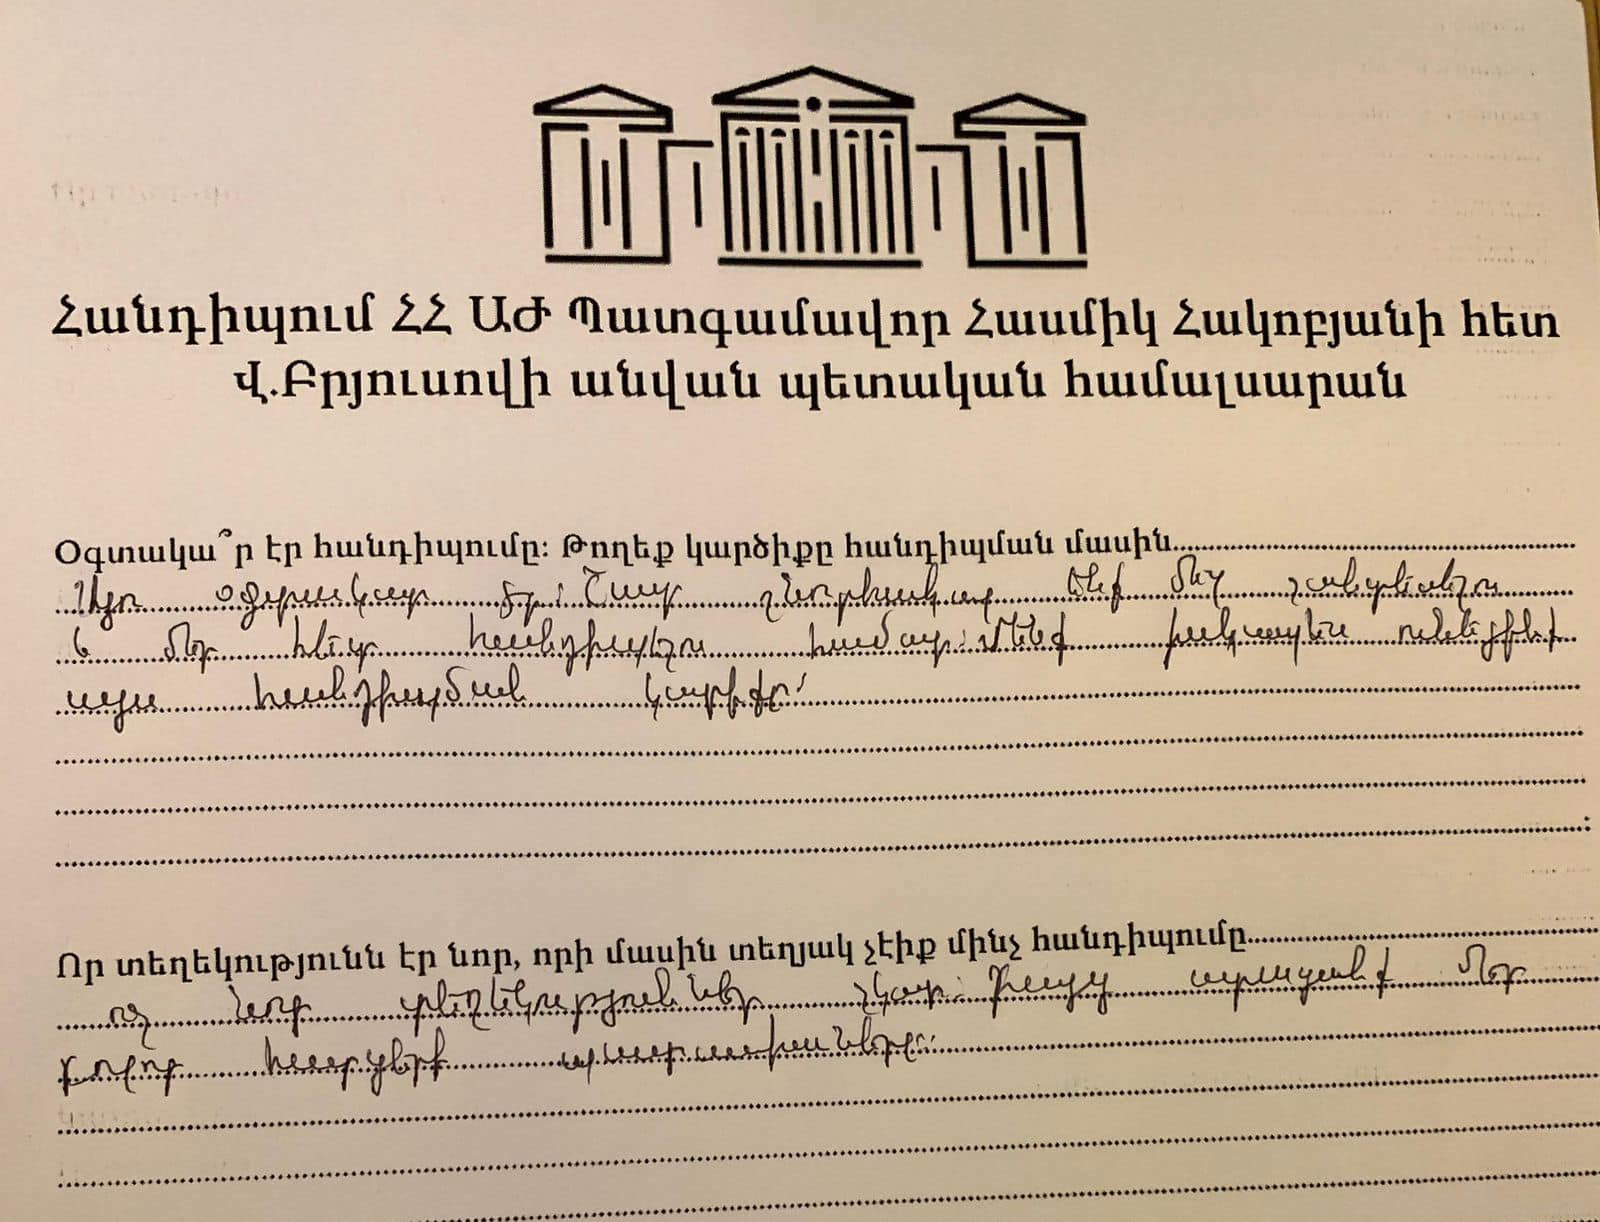 Հանդիպում ՀՀ ԱԺ Պատգամավոր Հասմիկ Հակոբյանի հետ
Վ.Բրյուսովի անվան պետական համալսարան
Օգտակա՞ր էր հանդիպումը։ Թողեք կարծիքը հանդիպման մասին
Այո օգտակար էր։ Շատ շնորհակալ ենք մեզ
և մեր հետ հանդիպելու համար։ Մենք իսկապես ունեինք
այս հանդիպման կարիքը։
Որ տեղեկությունն էր նոր, որի մասին տեղյակ չէիք մինչ հանդիպումը
ոչ նոր տեղեկություններ չկար։ Բայց ստացանք մեր
բոլոր հարցերի պատասխանները։